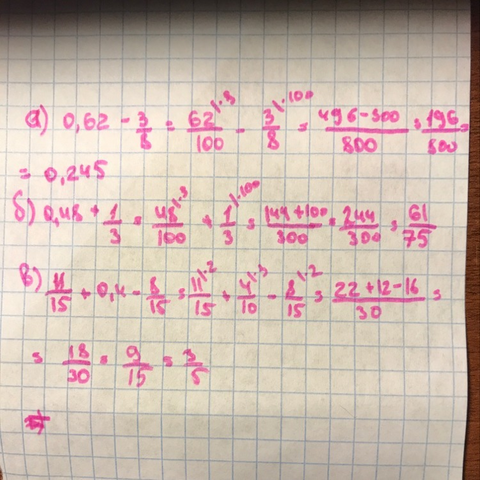 а) 0,62 - 3/8 = 62/100 \·3 - 3/8 \·100 = 496-300/800 = 196/800 =
= 0,245
б) 0,48 + 1/3 = 48/100 \·3 + 1/3 \·100 = 144+100/300 = 244/300 = 61/75
в) 11/15 + 0,4 - 8/15 = 11/15 \·2 + 4/10 \·3 - 8/15 \·2 = 22+12-16/30 =
= 18/30 = 9/15 = 3/5